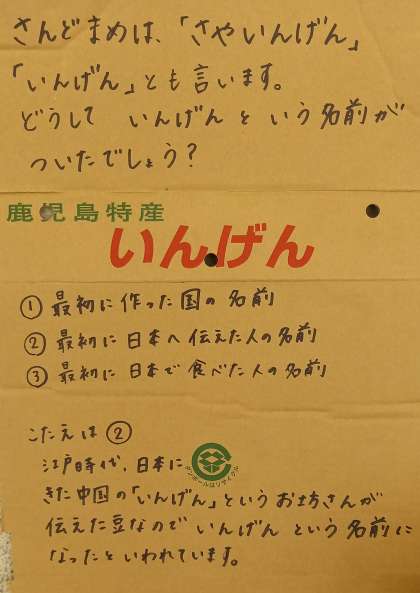 さんどまめは、「さやいんげん」
「いんげん」とも言います。
どうして いんげん と いう 名前が
ついたでしょう？
鹿児島特産
いんげん
① 最初に 作った 国の 名前
② 最初に 日本へ 伝えた人の 名前
③ 最初に 日本で 食べた人の 名前
こたえは ②
江戸時代、日本に
ダンボールはリサイクル
きた中国の「いんげん」という お坊さんが
伝えた豆なので いんげん という 名前に
なったといわれています。